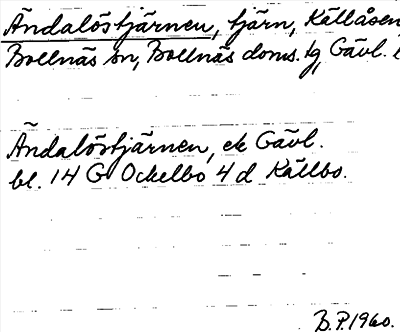 Ändalöstjärnen, tjärn, Källåsen
Bollnäs sn, Bollnäs doms. tg, Gävl.
Ändalöstjärnen, ek Gävl.
bl. 14 G Ockelbo 4 d Källbo.
B.P. 1960.